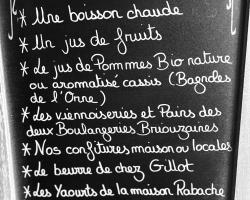 * Une boisson chaude
* Un jus de fruits
* Le jus de Pommes Bio nature
ou aromatisé cassis (Bagnoles
de l'Orne)
* Les viennoiseries et Pains des
deux Boulangeries Briouzaines
* Nos confitures maison ou locales
* Le beurre de chez Gillot
* Les Yaourts de la maison Rabache